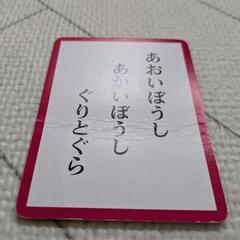 あおいぼうし
あかいぼうし
ぐりとぐら